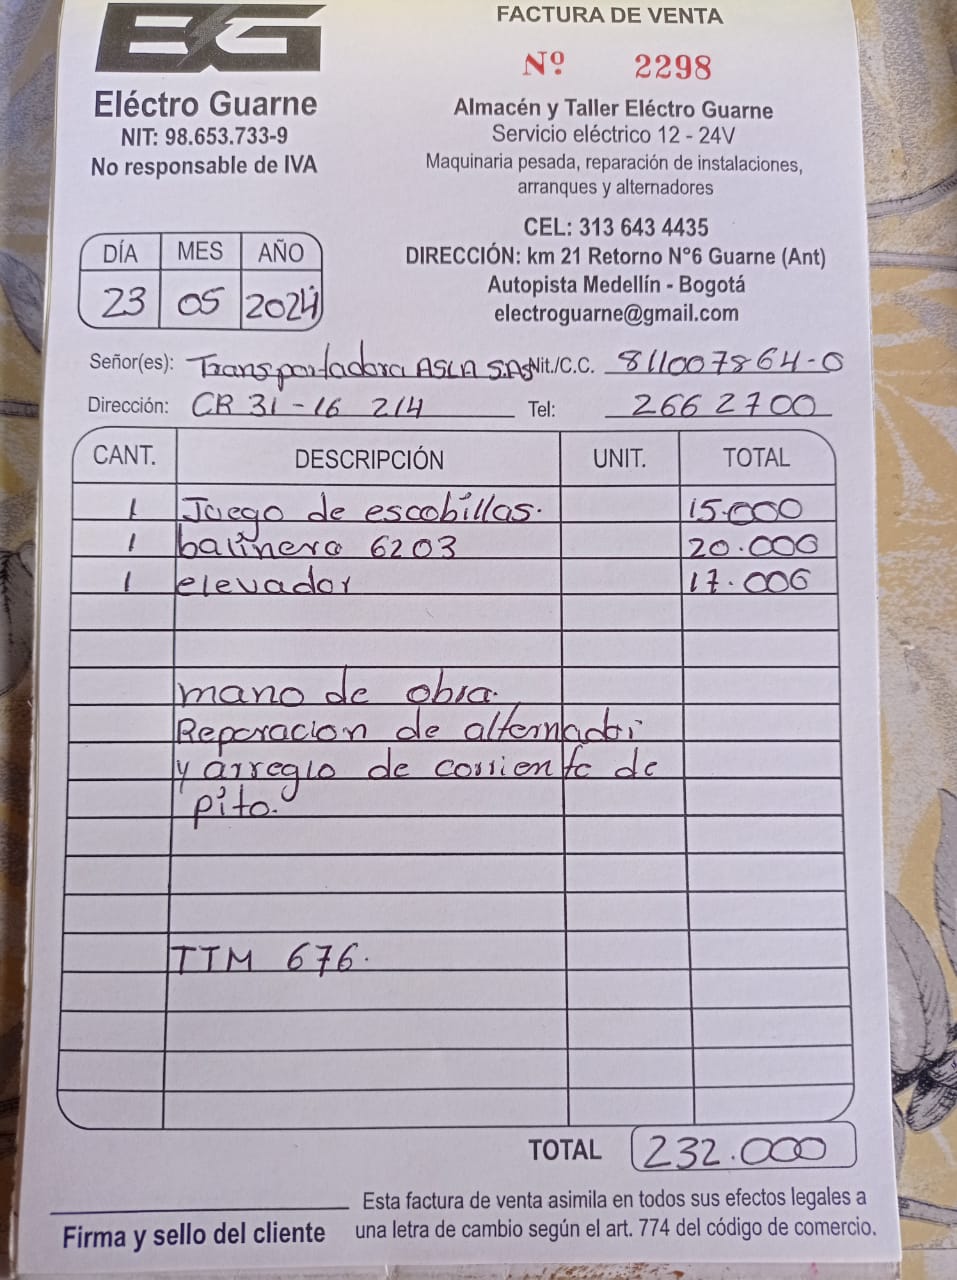 EG
FACTURA DE VENTA
Nº 2298
Eléctro Guarne
NIT: 98.653.733-9
No responsable de IVA
Almacén y Taller Eléctro Guarne
Servicio eléctrico 12 - 24V
Maquinaria pesada, reparación de instalaciones,
arranques y alternadores
CEL: 313 643 4435
DIRECCIÓN: km 21 Retorno N°6 Guarne (Ant)
Autopista Medellín - Bogotá
electroguarne@gmail.com
DÍA MES AÑO
23 05 2024
Señor(es): Transportadora ASLA S.A.S Nit./C.C. 811007864-0
Dirección: CR 31-16 214 Tel: 266 2700
CANT. DESCRIPCIÓN UNIT. TOTAL
1 Juego de escobillas. 15.000
1 balinera 6203 20.000
1 elevador 17.000
mano de obra.
Reparacion de alternador
y arreglo de corriente de
pito.
TTM 676.
TOTAL 232.000
Esta factura de venta asimila en todos sus efectos legales a
una letra de cambio según el art. 774 del código de comercio.
Firma y sello del cliente